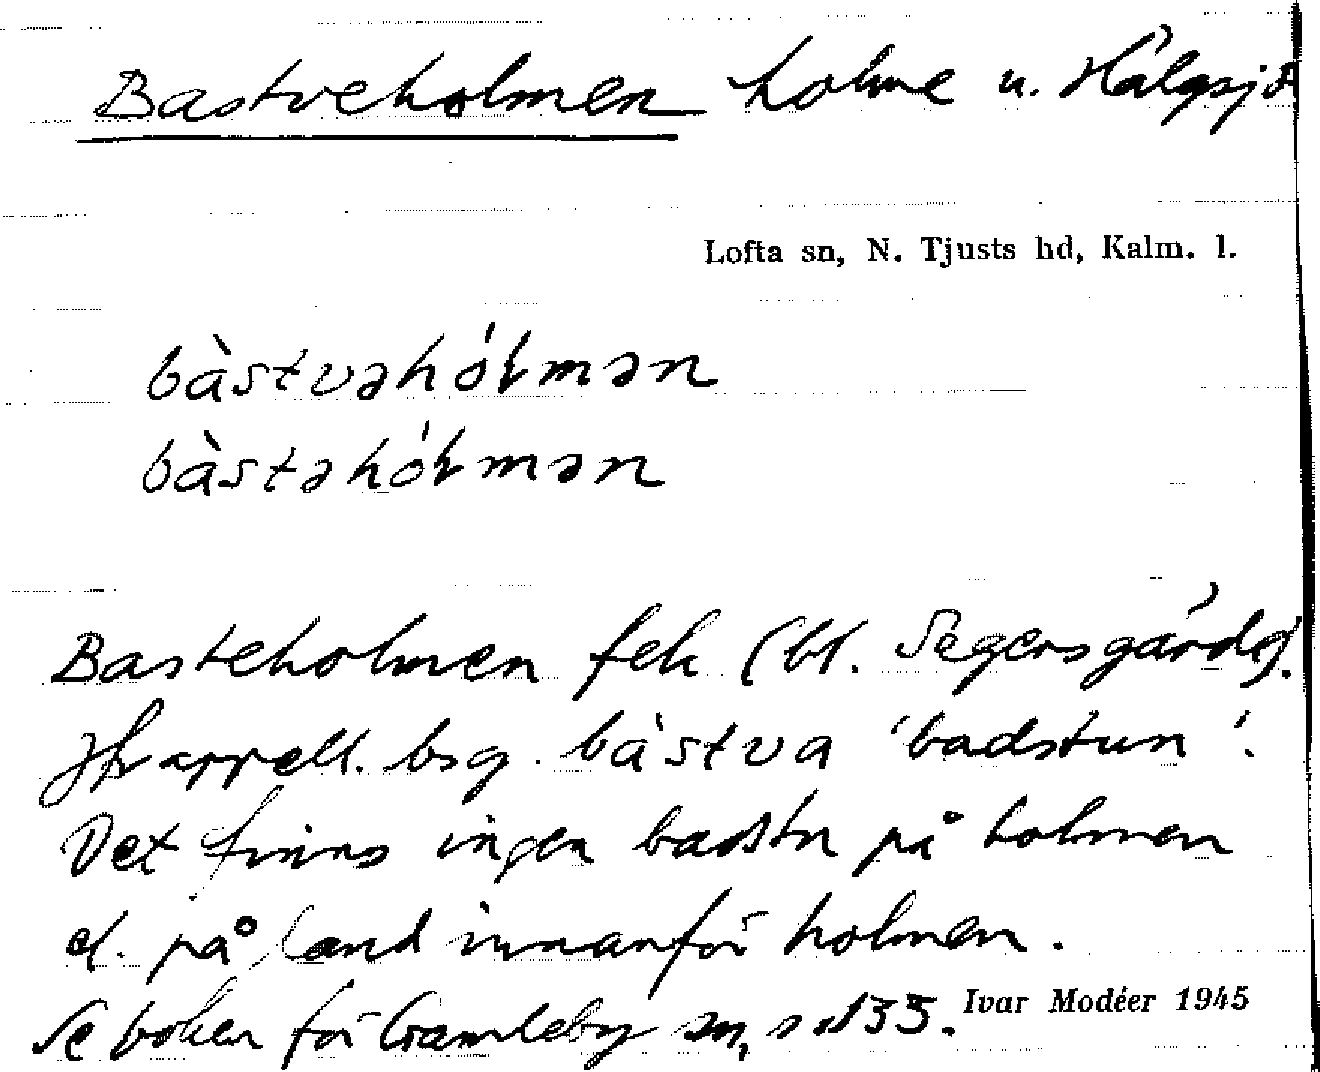 Bastveholmen holme u. Hälgsjö
Lofta sn, N. Tjusts hd, Kalm. l.
bàstvəhóɫmən
bàstəhóɫmən
Basteholmen fek (bl. Segersgårds).
Jfr appell. bsg. bàstva 'badstun'.
Det finns ingen badstu på holmen
el. på land innanför holmen.
Se boken för Gamleby sn, s.
Ivar Modéer 1945